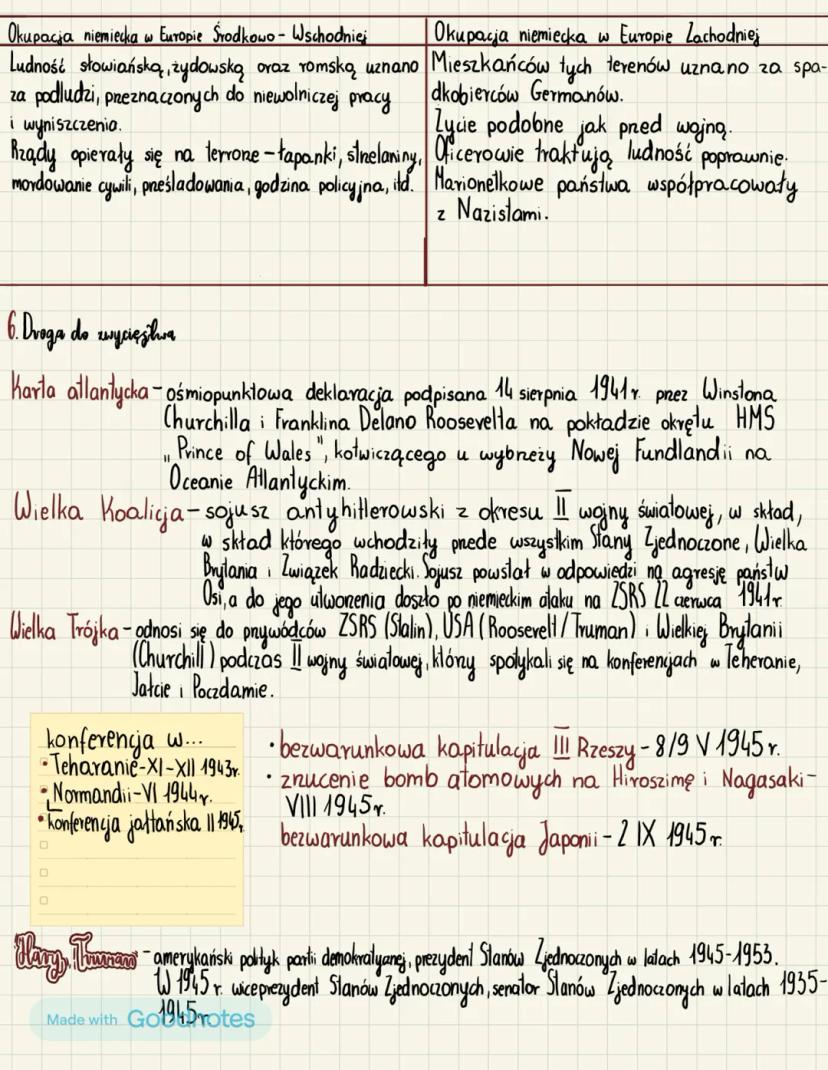 Okupacja niemiecka w Europie Środkowo-Wschodniej
Ludność słowiańską, żydowską oraz romską uznano
za podludzi, przeznaczonych do niewolniczej pracy
i wyniszczenia.
Rządy opierały się na terrorze - łapanki, strzelaniny,
mordowanie cywili, prześladowania, godzina policyjna, itd.
Okupacja niemiecka w Europie Zachodniej
Mieszkańców tych terenów uznano za spa-
dkobierców Germanów.
Życie podobne jak przed wojną.
Oficerowie traktują ludność poprawnie.
Marionetkowe państwa współpracowały
z Nazistami.
6. Droga do zwycięstwa
Karta atlantycka - ośmiopunktowa deklaracja podpisana 14 sierpnia 1941r. przez Winstona
Churchilla i Franklina Delano Roosevelta na pokładzie okrętu HMS
„Prince of Wales", kotwiczącego u wybrzeży Nowej Fundlandii na
Oceanie Atlantyckim.
Wielka Koalicja - sojusz antyhitlerowski z okresu II wojny światowej, w skład,
w skład którego wchodziły przede wszystkim Stany Zjednoczone, Wielka
Brytania i Związek Radziecki. Sojusz powstał w odpowiedzi na agresję państw
Osi, a do jego utworzenia doszło po niemieckim ataku na ZSRS 22 czerwca 1941r.
Wielka Trójka - odnosi się do przywódców ZSRS (Stalin), USA (Roosevelt/Truman) i Wielkiej Brytanii
(Churchill) podczas II wojny światowej, którzy spotykali się na konferencjach w Teheranie,
Jałcie i Poczdamie.
konferencja w...
• Teharanie-XI-XII 1943r.
• Normandii-VI 1944r.
• konferencja jałtańska II 1945r.
• bezwarunkowa kapitulacja III Rzeszy - 8/9 V 1945r.
• zrzucenie bomb atomowych na Hiroszimę i Nagasaki -
VIII 1945r.
bezwarunkowa kapitulacja Japonii - 2 IX 1945r.
Harry Truman - amerykański polityk partii demokratycznej, prezydent Stanów Zjednoczonych w latach 1945-1953.
W 1945r. wiceprezydent Stanów Zjednoczonych, senator Stanów Zjednoczonych w latach 1935-
1945r.
Made with Goodnotes